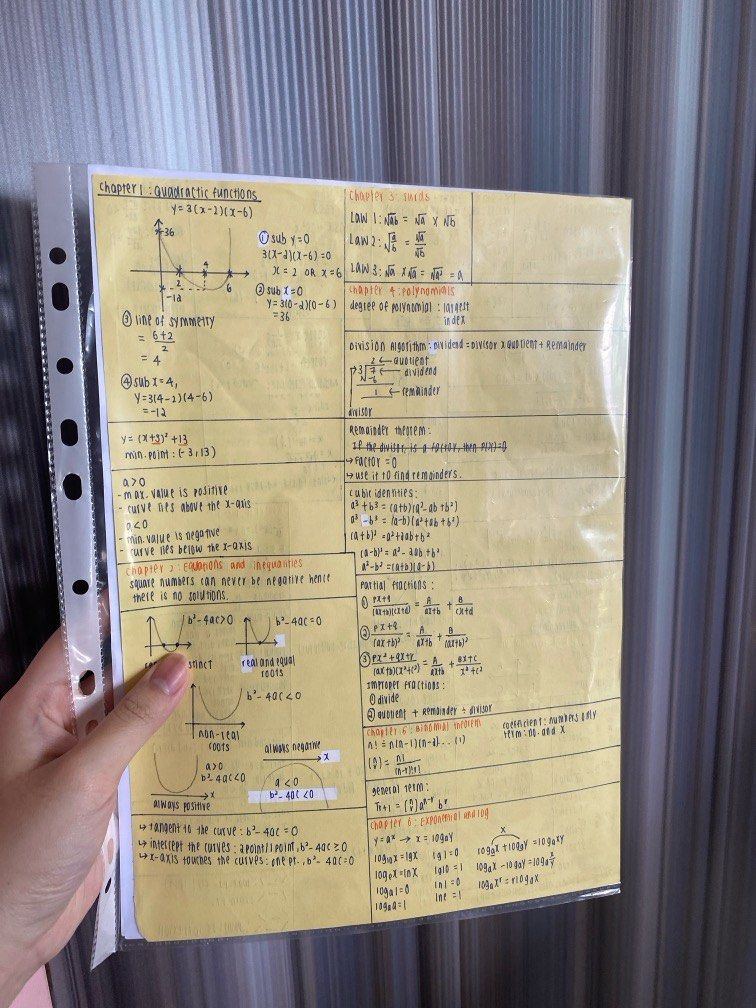 Chapter 1 : Quadractic functions
y = 3(x-2)(x-6)
36
2
4
6
-12
① sub y=0
3(x-2)(x-6)=0
x = 2 OR x=6
② sub x=0
y=3(0-2)(0-6)
=36
③ line of symmetry
= 6+2/2
= 4
④ sub x=4,
y=3(4-2)(4-6)
=-12
y= (x+3)² +13
min. point: (-3,13)
a>0
- max. value is positive
- curve lies above the x-axis
a<0
- min. value is negative
- curve lies below the x-axis
chapter 2: Equations and inequalities
square numbers can never be negative hence
there is no solutions.
b²-4ac>0
b²-4ac=0
real and equal
roots
b²-4ac<0
non-real
roots
a>0
b²-4ac<0
x
always positive
always negative
x
a<0
b²-4ac<0
↳ tangent to the curve: b²-4ac=0
↳ intercept the curves: 2point/1point, b²-4ac≥0
↳ x-axis touches the curves: one pt., b²-4ac=0
chapter 3: surds
Law 1: √ab = √a x √b
Law 2: √a/b = √a/√b
Law 3: √a x √a = √a² = a
chapter 4: polynomials
degree of polynomial: largest
index
Division Algorithm: Dividend=Divisor x Quotient + Remainder
2 ← quotient
3 7 ← dividend
-6
1 ← remainder
divisor
Remainder theorem:
If the divisor, is a factor, then P(x)=0
↳ Factor =0
↳ use it to find remainders.
cubic identities:
a³+b³ = (a+b)(a²-ab+b²)
a³-b³ = (a-b)(a²+ab+b²)
(a+b)² = a²+2ab+b²
(a-b)² = a²-2ab+b²
a²-b² = (a+b)(a-b)
Partial fractions:
① px+q/(ax+b)(cx+d) = A/ax+b + B/cx+d
② px+q/(ax+b)² = A/ax+b + B/(ax+b)²
③ px²+qx+r/(ax+b)(x²+c²) = A/ax+b + Bx+C/x²+c²
Improper fractions:
① divide
② Quotient + Remainder ÷ divisor
chapter 5: Binomial theorem
coefficient: numbers only
term: no. and x
n! = n(n-1)(n-2)... (1)
(n r) = n!/(n-r)!r!
general term:
Tr+1 = (n r) aⁿ⁻ʳ bʳ
chapter 6: Exponential and log
y=aˣ → x = logₐy
log₁₀x=lgx
logₑx=lnx
logₐ1=0
logₐa=1
lg1=0
lg10=1
ln1=0
lne=1
x
logₐx+logₐy=logₐxy
logₐx-logₐy=logₐx/y
logₐxʳ=rlogₐx